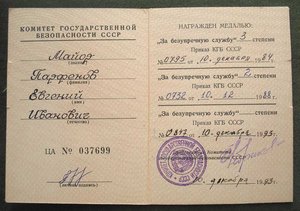 КОМИТЕТ ГОСУДАРСТВЕННОЙ
БЕЗОПАСНОСТИ СССР
Майор
(звание)
Парфонов
(фамилия)
Евгений
(имя)
Иванович
(отчество)
ЦА № 037699
(личная подпись)
НАГРАЖДЕН МЕДАЛЬЮ:
„За безупречную службу“ 3 степени
Приказ КГБ СССР
№ 0795 10. декабря 1984.
„За безупречную службу“ 2 степени
Приказ КГБ СССР
№ 0732 10. 12 1988.
„За безупречную службу“ степени
Приказ КГБ СССР
10. декабря 1993.
декабря 1993.